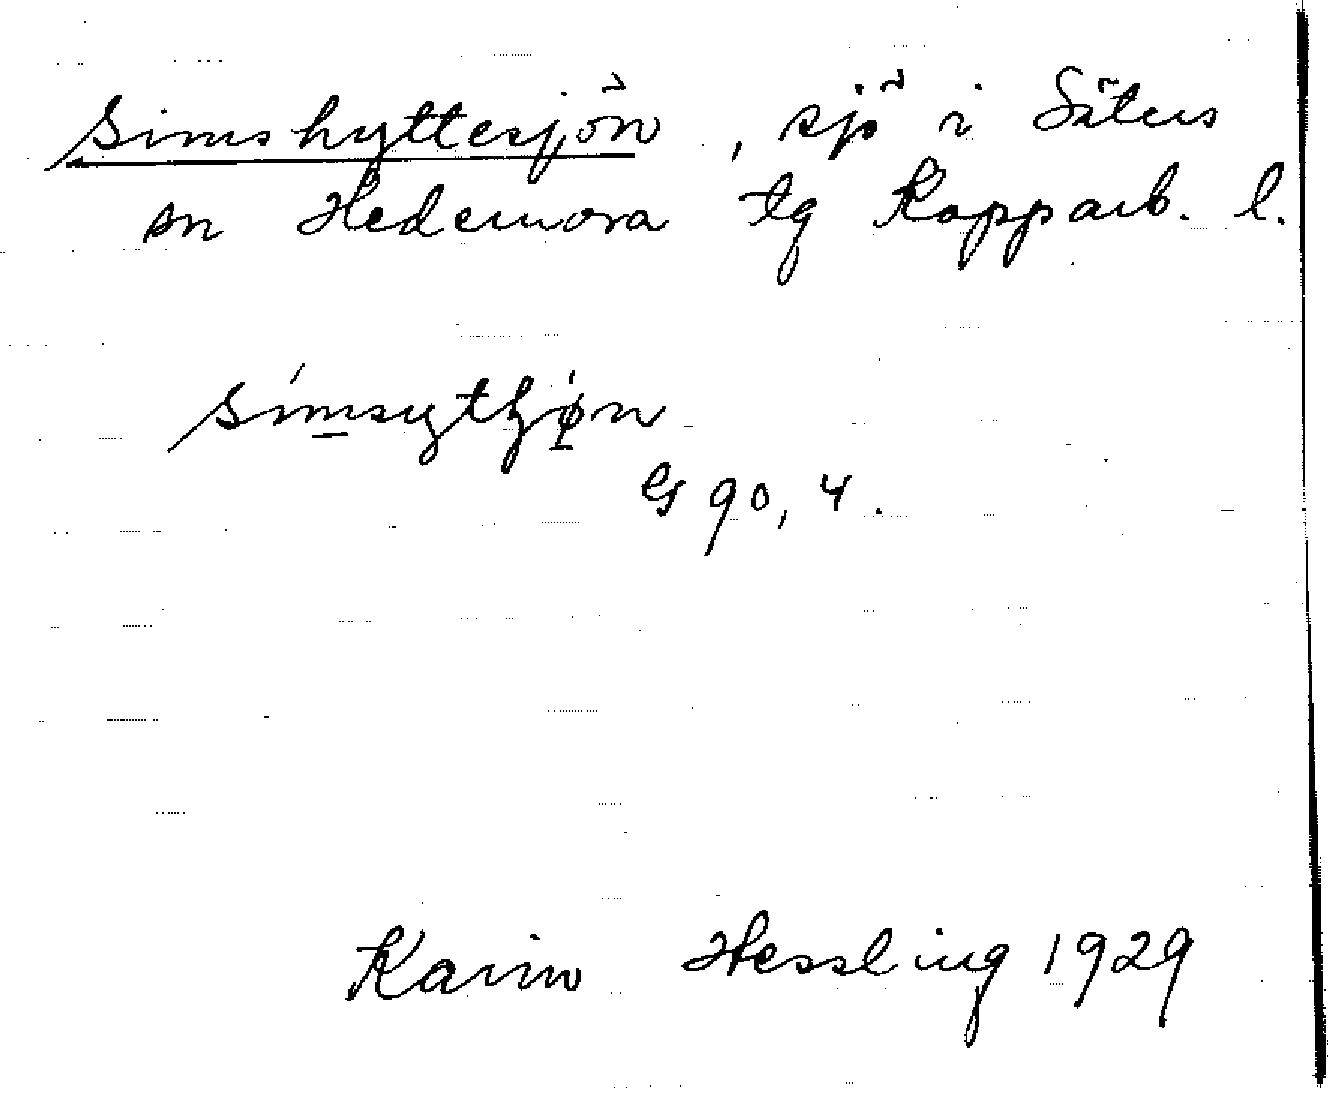 Simshyttesjön, sjö i Säters
sn Hedemora tg Kopparb. l.
G 90, 4.
Karin Hessling 1929